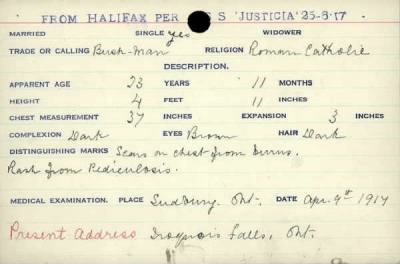 FROM HALIFAX PER S S 'JUSTICIA' 25-8-17
MARRIED SINGLE yes WIDOWER
TRADE OR CALLING Bush-Man RELIGION Roman Catholic
DESCRIPTION.
APPARENT AGE 23 YEARS 11 MONTHS
HEIGHT 4 FEET 11 INCHES
CHEST MEASUREMENT 37 INCHES EXPANSION 3 INCHES
COMPLEXION Dark EYES Brown HAIR Dark
DISTINGUISHING MARKS Scars on chest from burns.
Rash from Pediculosis.
MEDICAL EXAMINATION. PLACE Sudbury. Ont. DATE Apr. 9th 1917
Present Address Iroquois Falls, Ont.